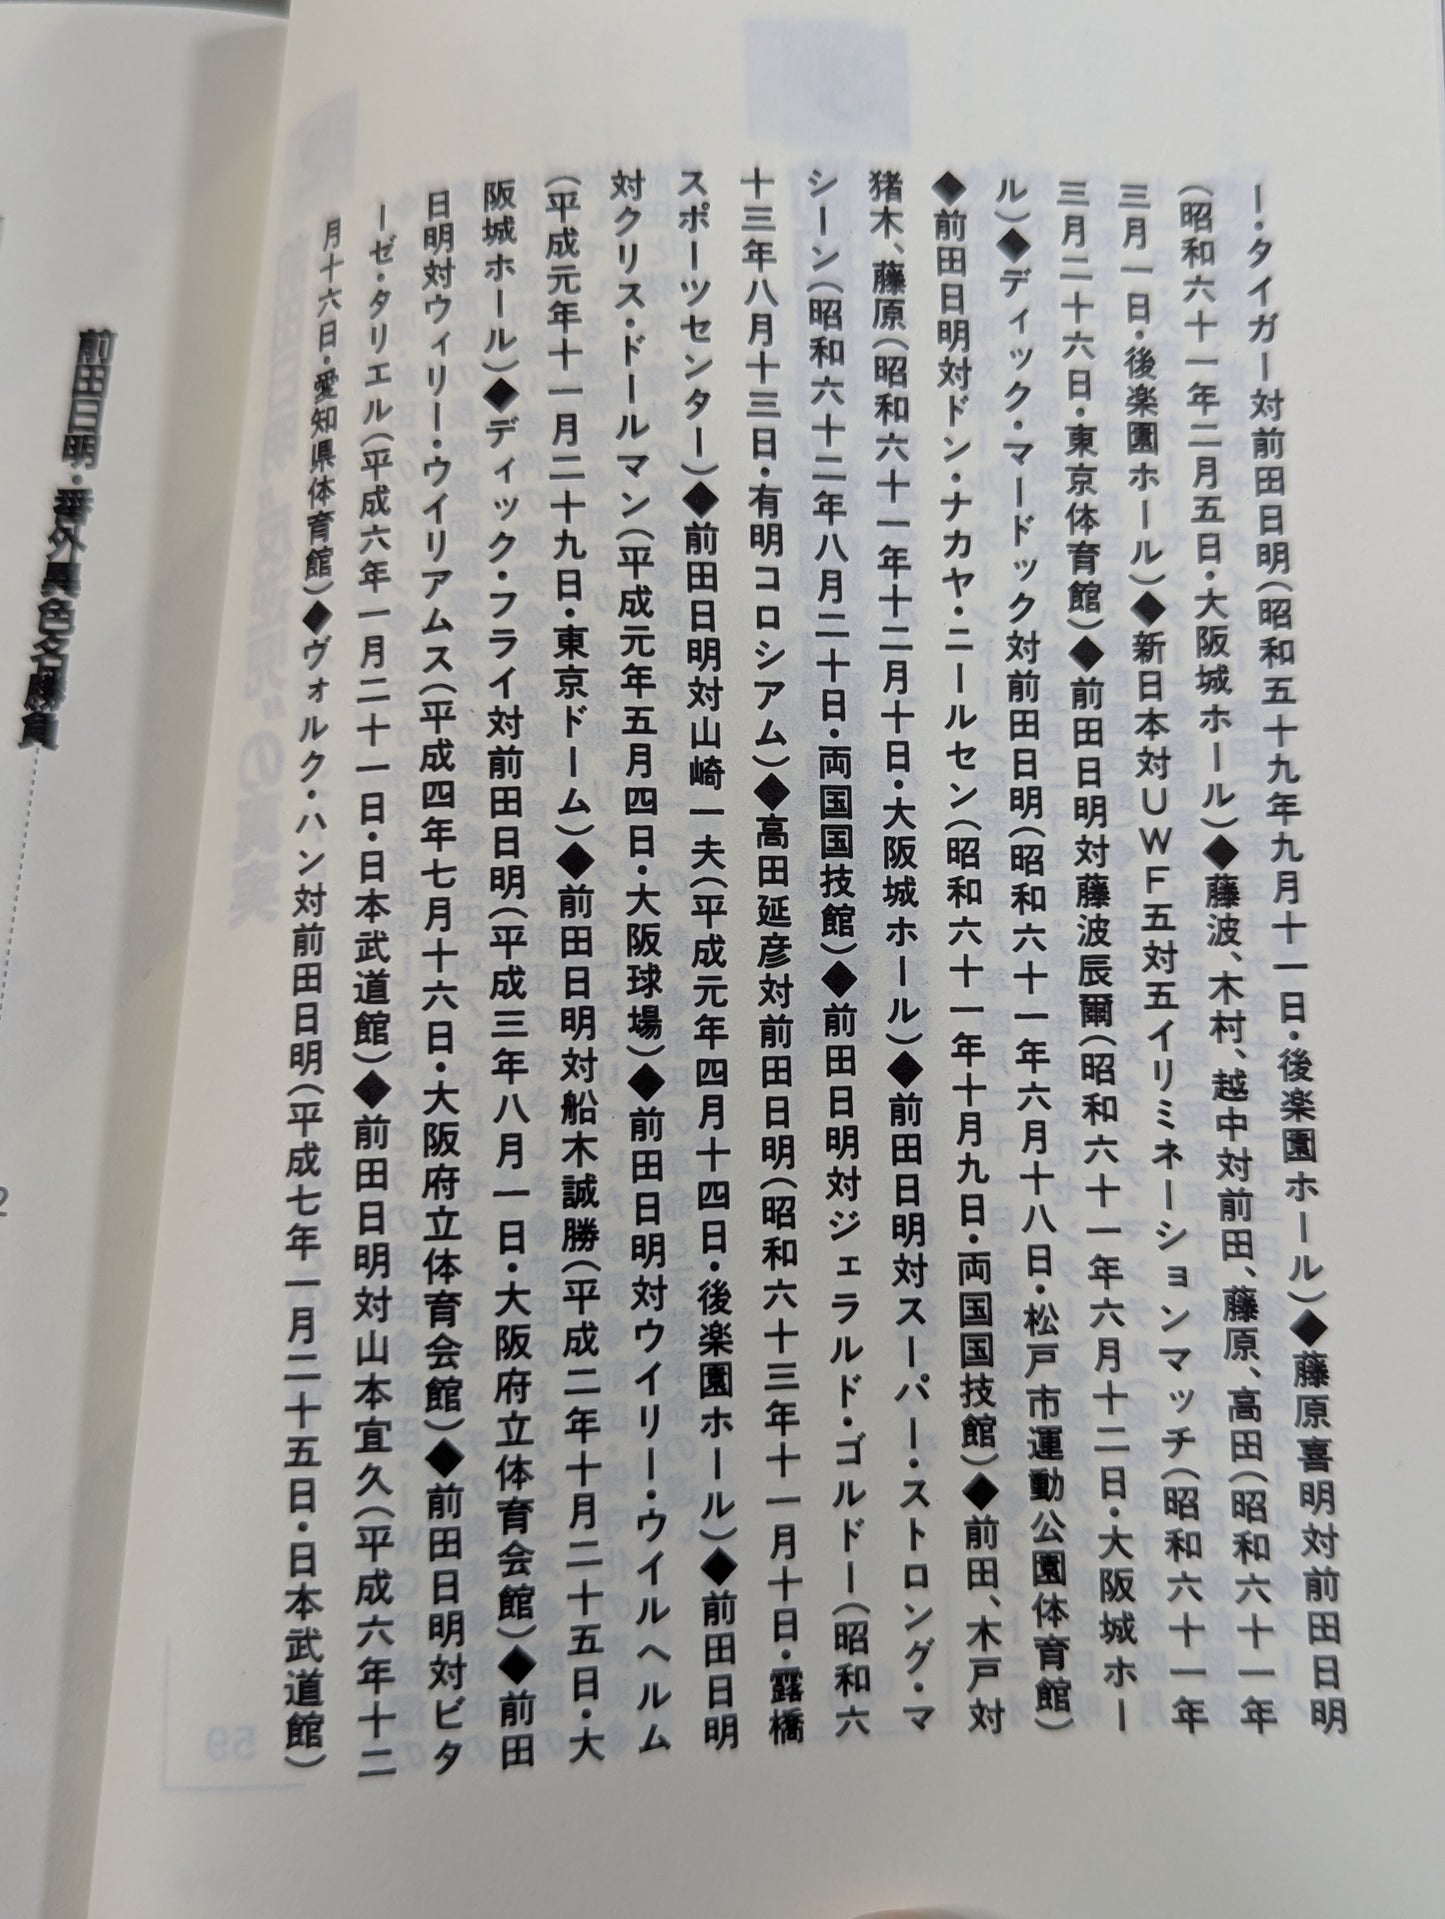 ー・タイガー対前田日明(昭和五十九年九月十一日・後楽園ホール)◆藤原喜明対前田日明
(昭和六十一年二月五日・大阪城ホール)◆藤波、木村、越中対前田、藤原、高田(昭和六十一年
三月一日・後楽園ホール)◆新日本対UWF五対五イリミネーションマッチ(昭和六十一年
三月二十六日・東京体育館)◆前田日明対藤波辰爾(昭和六十一年六月十二日・大阪城ホー
ル)◆ディック・マードック対前田日明(昭和六十一年六月十八日・松戸市運動公園体育館)
◆前田日明対ドン・ナカヤ・ニールセン(昭和六十一年十月九日・両国国技館)◆前田、木戸対
猪木、藤原(昭和六十一年十二月十日・大阪城ホール)◆前田日明対スーパー・ストロング・マ
シーン(昭和六十二年八月二十日・両国国技館)◆前田日明対ジェラルド・ゴルドー(昭和六
十三年八月十三日・有明コロシアム)◆高田延彦対前田日明(昭和六十三年十一月十日・露橋
スポーツセンター)◆前田日明対山崎一夫(平成元年四月十四日・後楽園ホール)◆前田日明
対クリス・ドールマン(平成元年五月四日・大阪球場)◆前田日明対ウイリー・ウイルヘルム
(平成元年十一月二十九日・東京ドーム)◆前田日明対船木誠勝(平成二年十月二十五日・大
阪城ホール)◆ディック・フライ対前田日明(平成三年八月一日・大阪府立体育会館)◆前田
日明対ウィリー・ウイリアムス(平成四年七月十六日・大阪府立体育会館)◆前田日明対ビタ
ーゼ・タリエル(平成六年一月二十一日・日本武道館)◆前田日明対山本宜久(平成六年十二
月十六日・愛知県体育館)◆ヴォルク・ハン対前田日明(平成七年一月二十五日・日本武道館)
前田日明・番外異色名勝負
2